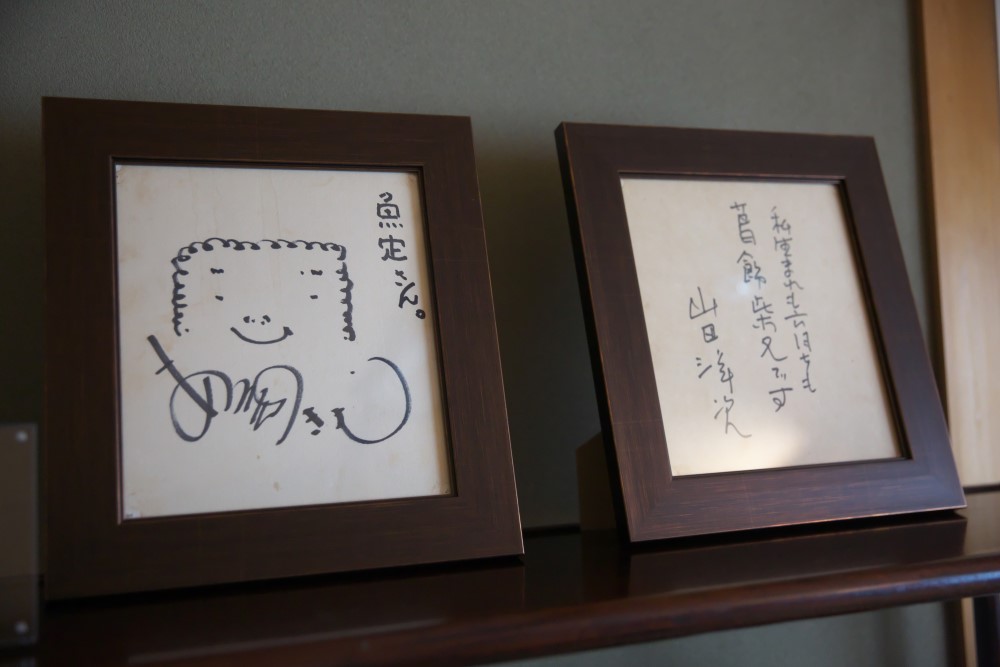 魚定
私生まれも育ちも
葛飾柴又です
山田洋次